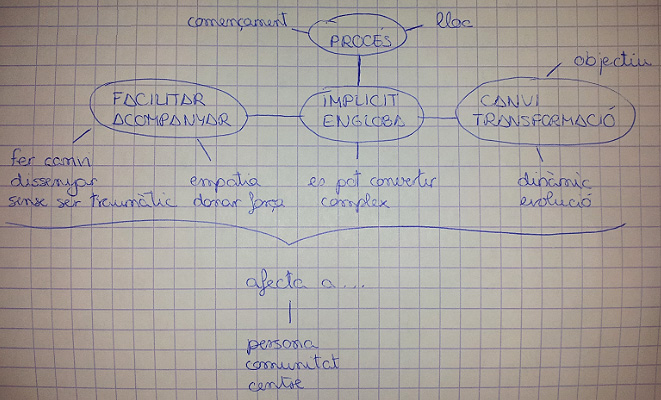 començament
lloc
PROCÉS
objectiu
FACILITAR
ACOMPANYAR
IMPLICIT
ENGLOBA
CANVI
TRANSFORMACIÓ
fer camin
dissenyar
sense ser traumàtic
empatia
donar força
es pot convertir
complex
dinàmic
evolució
afecta a ...
persona
comunitat
centre